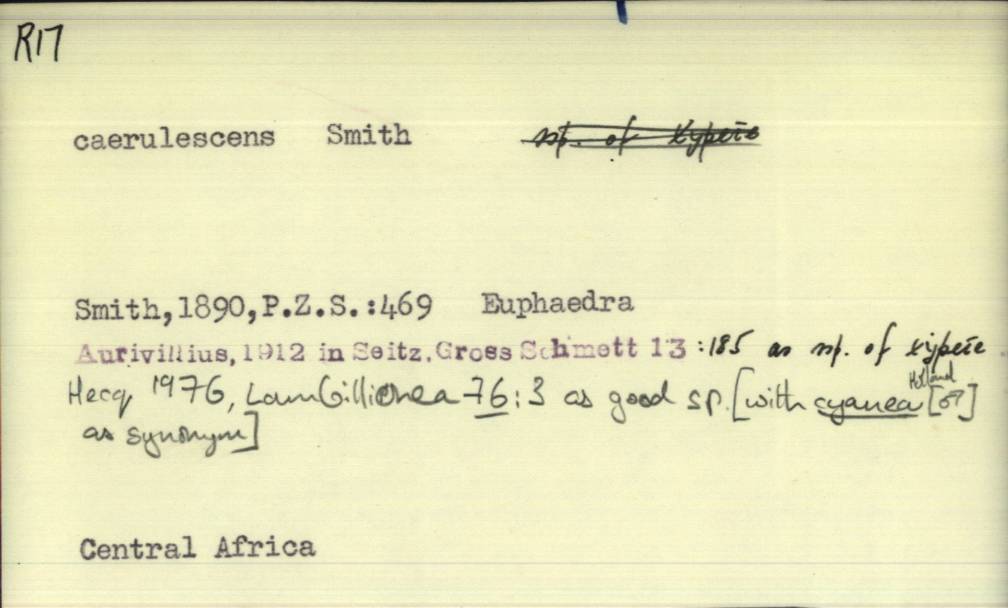 R17
caerulescens Smith ssp. of xypete
Smith,1890,P.Z.S.:469 Euphaedra
Aurivillius, 1912 in Seitz. Gross Schmett 13 :185 as ssp. of xypete.
Hecq 1976, Lambillionea 76: 3 as good sp. [with cyanea Holland [♂]
as synonym]
Central Africa